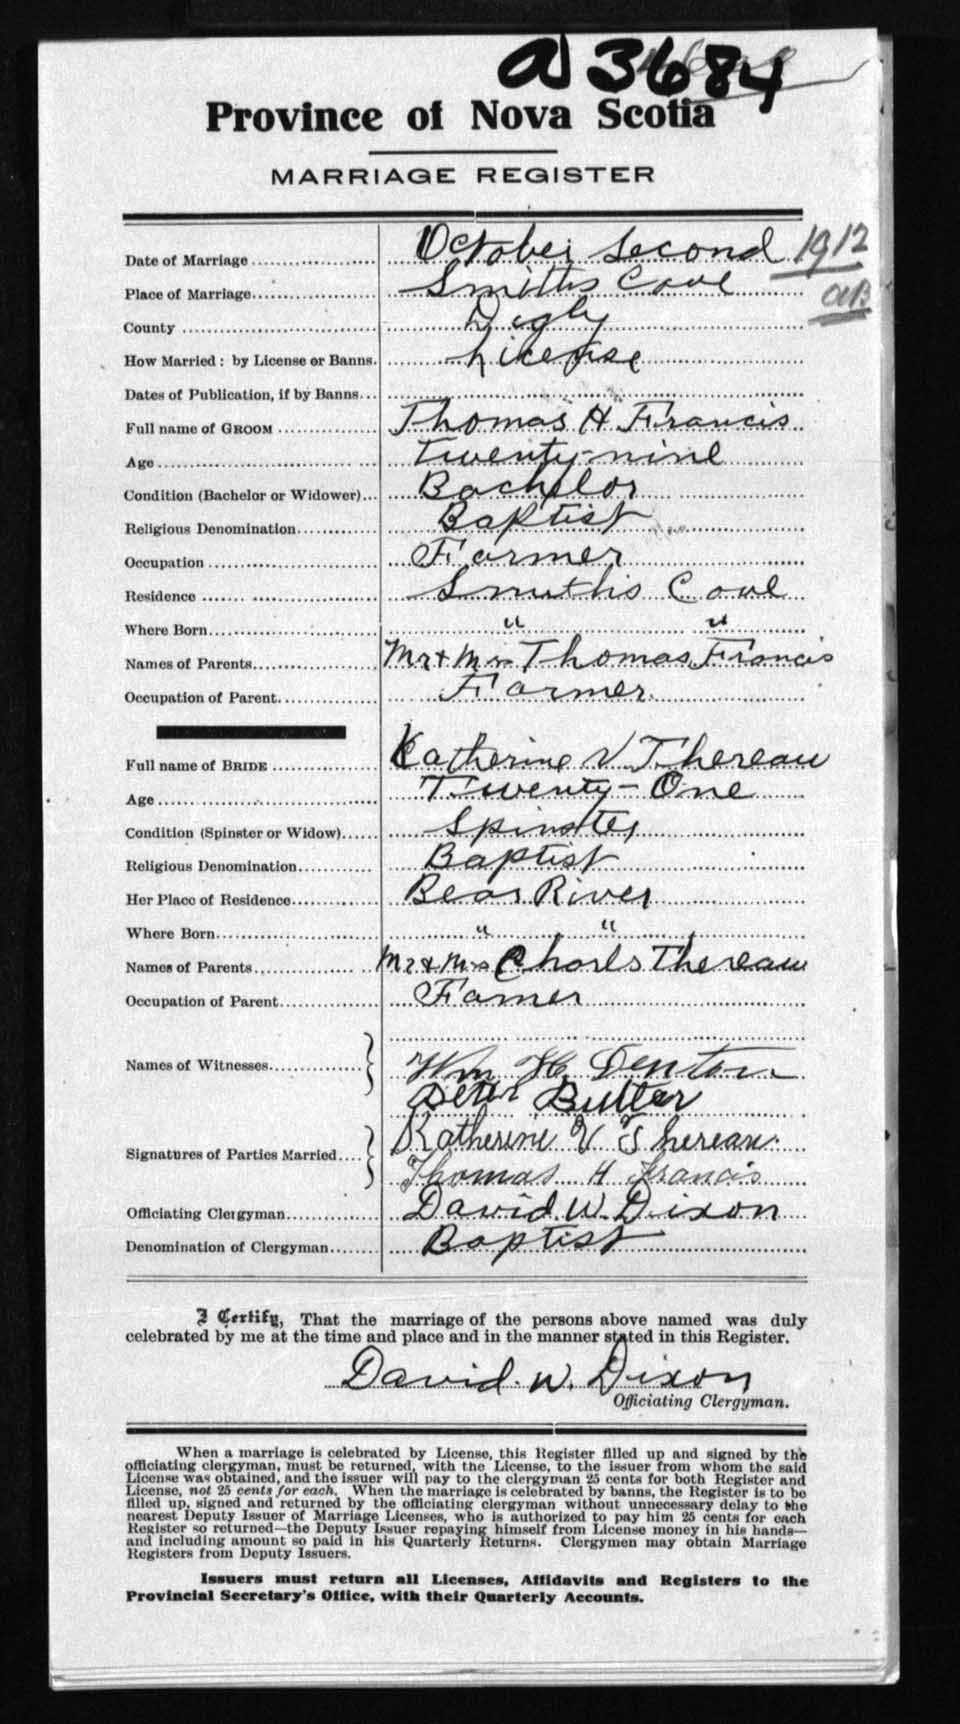 a 3684
Province of Nova Scotia
MARRIAGE REGISTER
Date of Marriage October Second 1912
Place of Marriage Smiths Cove
County Digby
How Married: by License or Banns. License
Dates of Publication, if by Banns
Full name of GROOM Thomas H Francis
Age Twenty-nine
Condition (Bachelor or Widower) Bachelor
Religious Denomination Baptist
Occupation Farmer
Residence Smiths Cove
Where Born " "
Names of Parents Mr + Mrs Thomas Francis
Occupation of Parent Farmer
Full name of BRIDE Katherine V. Thereau
Age Twenty-One
Condition (Spinster or Widow) Spinster
Religious Denomination Baptist
Her Place of Residence Bear River
Where Born " "
Names of Parents Mr & Mrs Charls Thereau
Occupation of Parent Famer
Names of Witnesses Wm H. Denton
Peter Butler
Signatures of Parties Married Katherine V Thereau
Thomas H Francis
Officiating Clergyman David W. Dixon
Denomination of Clergyman Baptist
I Certify, That the marriage of the persons above named was duly
celebrated by me at the time and place and in the manner stated in this Register.
David W. Dixon
Officiating Clergyman.
When a marriage is celebrated by License, this Register filled up and signed by the
officiating clergyman, must be returned, with the License, to the issuer from whom the said
License was obtained, and the issuer will pay to the clergyman 25 cents for both Register and
License, not 25 cents for each. When the marriage is celebrated by banns, the Register is to be
filled up, signed and returned by the officiating clergyman without unnecessary delay to the
nearest Deputy Issuer of Marriage Licenses, who is authorized to pay him 25 cents for each
Register so returned—the Deputy Issuer repaying himself from License money in his hands—
and including amount so paid in his Quarterly Returns. Clergymen may obtain Marriage
Registers from Deputy Issuers.
Issuers must return all Licenses, Affidavits and Registers to the
Provincial Secretary's Office, with their Quarterly Accounts.